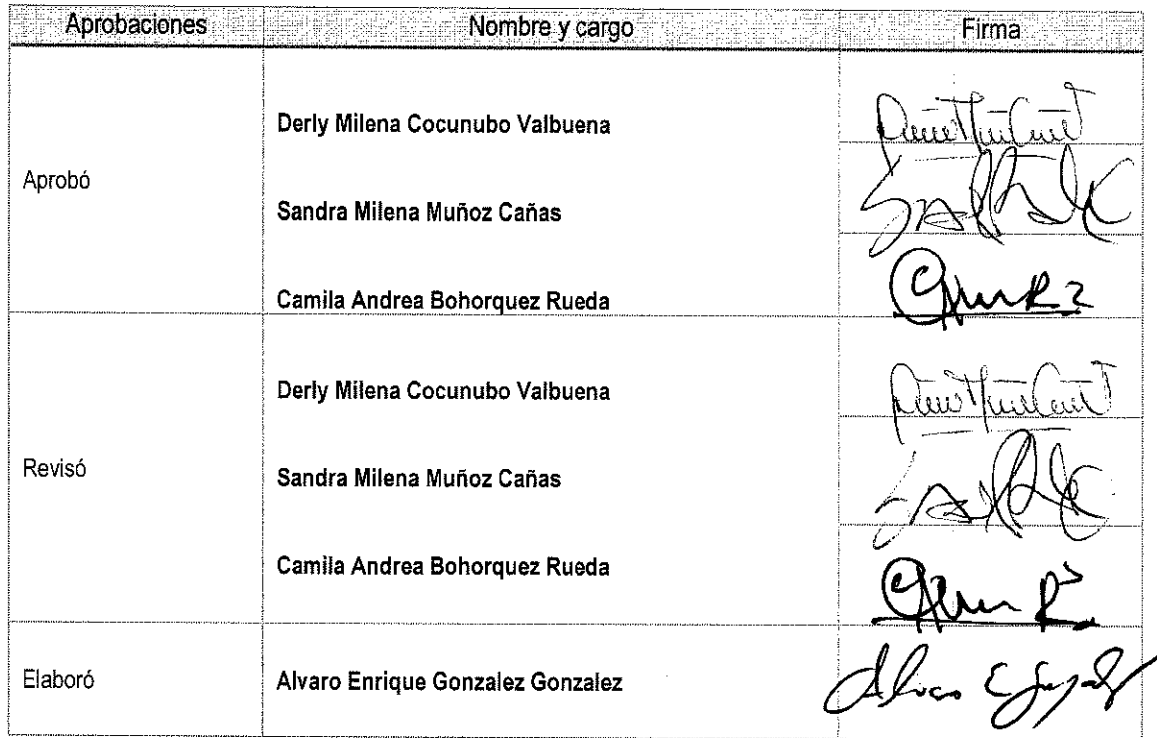 Aprobaciones Nombre y cargo Firma
Derly Milena Cocunubo Valbuena
Aprobó
Sandra Milena Muñoz Cañas
Camila Andrea Bohorquez Rueda
Derly Milena Cocunubo Valbuena
Revisó
Sandra Milena Muñoz Cañas
Camila Andrea Bohorquez Rueda
Elaboró Alvaro Enrique Gonzalez Gonzalez